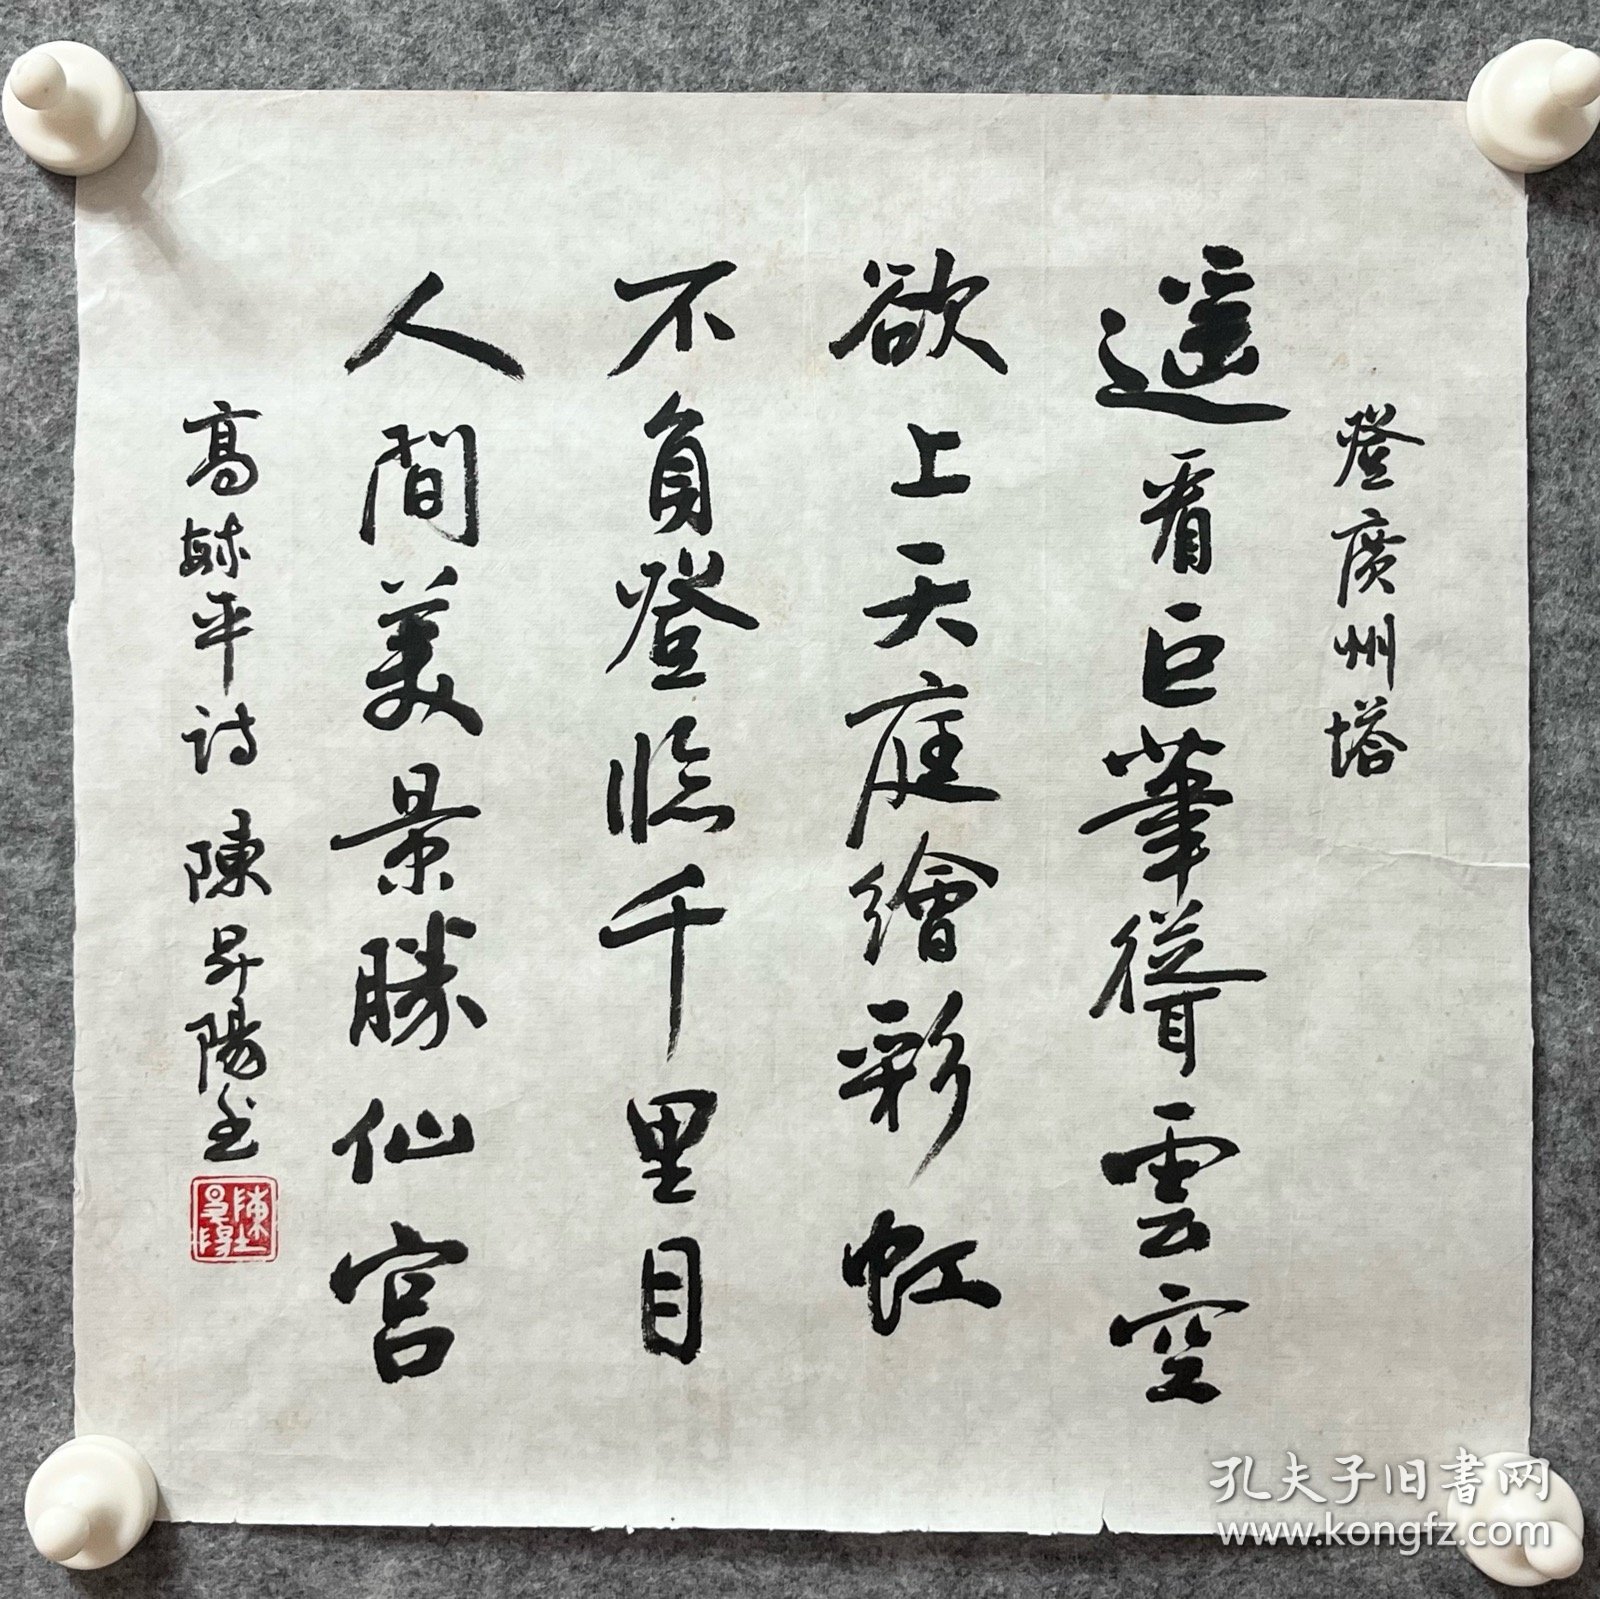 登廣州塔
遥看巨筆聳雲空
欲上天庭繪彩虹
不負登臨千里目
人間美景勝仙宫
高毓平诗 陳昇陽书
孔夫子旧書网
www.kongfz.com